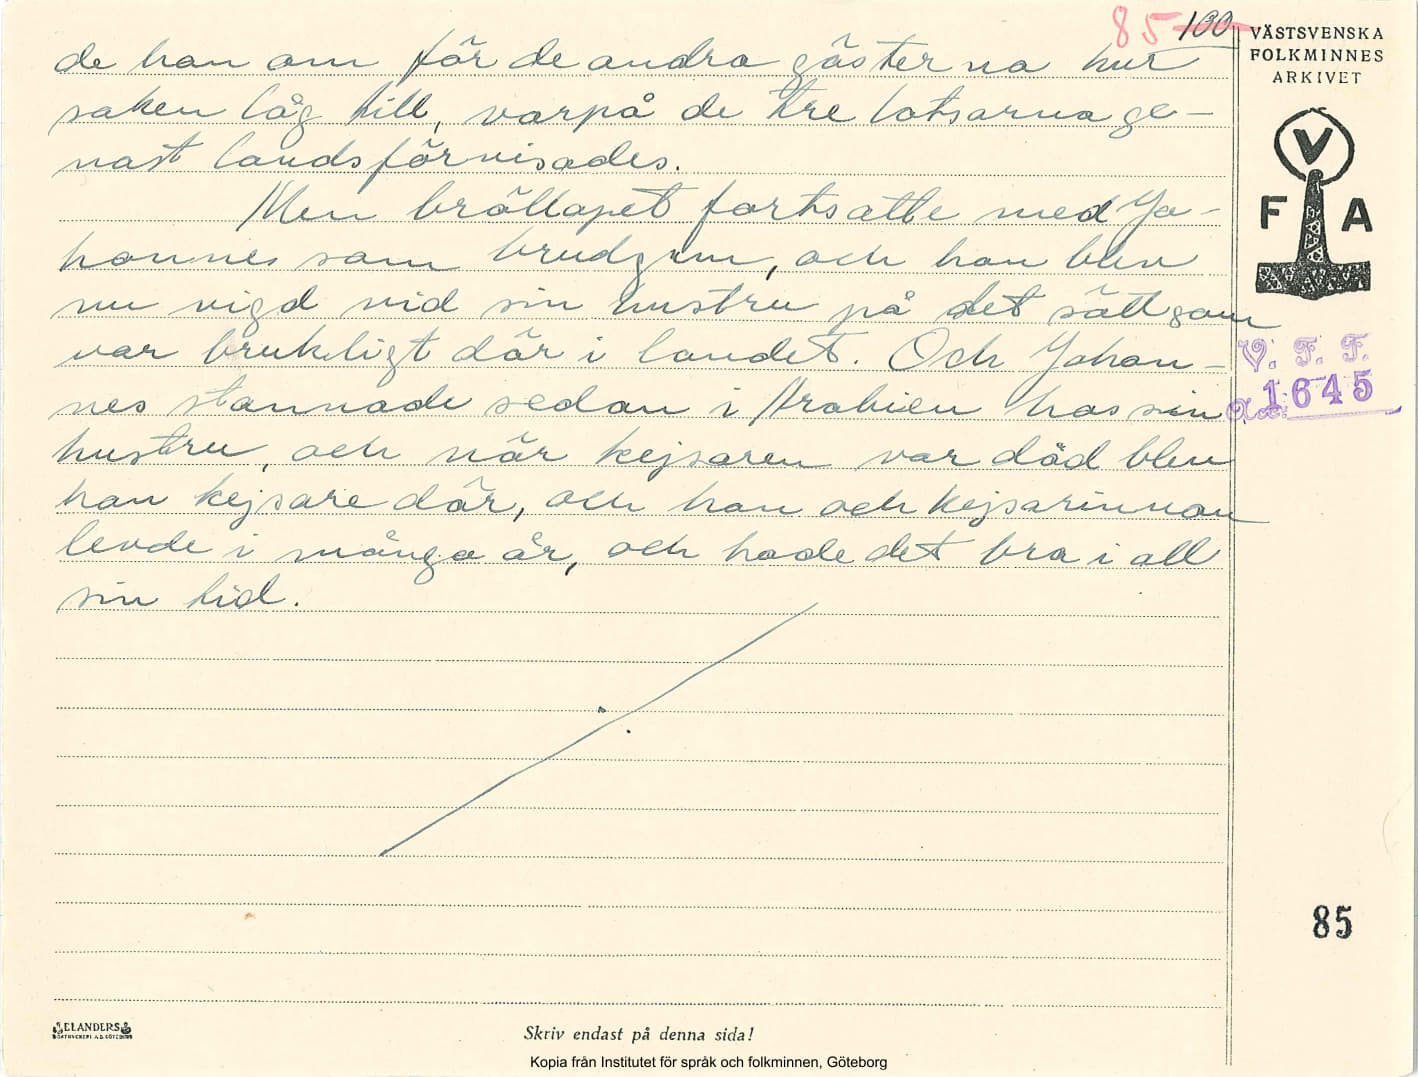 85 100
VÄSTSVENSKA
FOLKMINNES
ARKIVET
V
F A
V. F. F.
Acc: 1645
de han om för de andra gästerna hur
saken låg till, varpå de tre lotsarna ge-
nast landsförvisades.
Men bröllopet fortsatte med Jo-
hannes som brudgum, och han blev
nu vigd vid sin hustru på det sätt som
var brukligt där i landet. Och Johan-
nes stannade sedan i Arabien hos sin
hustru, och när kejsaren var död blev
han kejsare där, och han och kejsarinnan
levde i många år, och hade det bra i all
sin tid.
85
ELANDERS
Skriv endast på denna sida!
Kopia från Institutet för språk och folkminnen, Göteborg